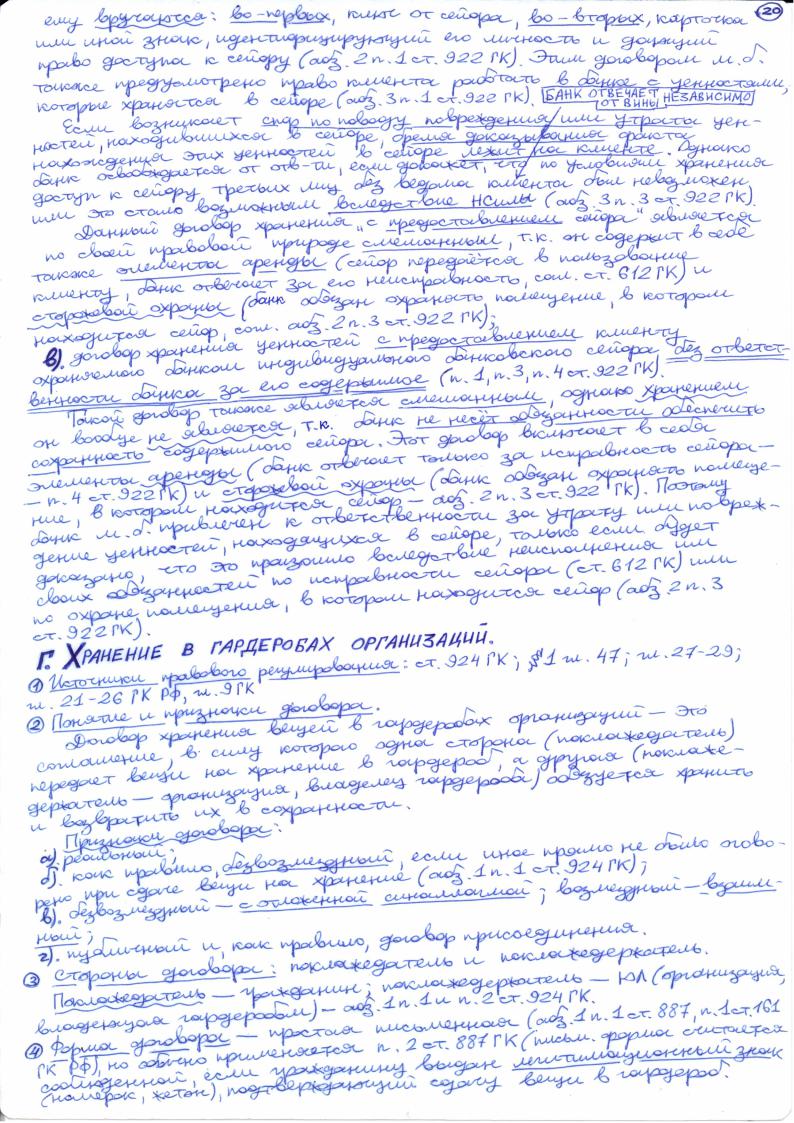 20
ему вручаются: во-первых, ключ от сейфа, во-вторых, карточка
или иной знак, идентифицирующий его личность и дающий
право доступа к сейфу (абз. 2 п. 1 ст. 922 ГК). Этим договором м.б.
также предусмотрено право клиента работать в банке с ценностями,
которые хранятся в сейфе (абз. 3 п. 1 ст. 922 ГК). БАНК ОТВЕЧАЕТ НЕЗАВИСИМО
ОТ ВИНЫ
Если возникает спор по поводу повреждения или утраты цен-
ностей, находившихся в сейфе, бремя доказывания факта
нахождения этих ценностей в сейфе лежит на клиенте. Однако
банк освобождается от отв-ти, если докажет, что по условиям хранения
доступ к сейфу третьих лиц без ведома клиента был невозможен
или это стало возможным вследствие НСилы (абз. 3 п. 3 ст. 922 ГК).
Данный договор хранения „с предоставлением сейфа“ является
по своей правовой природе смешанным, т.к. он содержит в себе
также элементы аренды (сейф передаётся в пользование
клиенту, банк отвечает за его неисправность, сом. ст. 612 ГК) и
сторожевой охраны (банк обязан охранять помещение, в котором
находится сейф, сом. абз. 2 п. 3 ст. 922 ГК);
в). договор хранения ценностей с предоставлением клиенту
охраняемого банком индивидуального банковского сейфа без ответст-
венности банка за его содержимое (п. 1, п. 3, п. 4 ст. 922 ГК).
Такой договор также является смешанным, однако хранением
он вообще не является, т.к. банк не несёт обязанности обеспечить
сохранность содержимого сейфа. Этот договор включает в себя
элементы аренды (банк отвечает только за исправность сейфа —
— п. 4 ст. 922 ГК) и сторожевой охраны (банк обязан охранять помеще-
ние, в котором находится сейф — абз. 2 п. 3 ст. 922 ГК). Поэтому
банк м.б. привлечен к ответственности за утрату или повреж-
дение ценностей, находящихся в сейфе, только если будет
доказано, что это произошло вследствие неисполнения им
своих обязанностей по исправности сейфа (ст. 612 ГК) или
по охране помещения, в котором находится сейф (абз. 2 п. 3
ст. 922 ГК).
Г. ХРАНЕНИЕ В ГАРДЕРОБАХ ОРГАНИЗАЦИЙ.
① Источники правового регулирования: ст. 924 ГК; § 1 гл. 47; гл. 27-29;
гл. 21-26 ГК РФ, гл. 9 ГК
② Понятие и признаки договора.
Договор хранения вещей в гардеробах организаций — это
соглашение, в силу которого одна сторона (поклажедатель)
передает вещи на хранение в гардероб, а другая (поклаже-
держатель — организация, владелец гардероба) обязуется хранить
и возвратить их в сохранности.
Признаки договора:
а). реальный;
б). как правило, безвозмездный, если иное прямо не было огово-
рено при сдаче вещи на хранение (абз. 1 п. 1 ст. 924 ГК);
в). безвозмездный — с отложенной синаллагмой; возмездный — взаим-
ный;
г). публичный и, как правило, договор присоединения.
③ Стороны договора: поклажедатель и поклажедержатель.
Поклажедатель — гражданин; поклажедержатель — ЮЛ (организация,
владеющая гардеробом) — абз. 1 п. 1 и п. 2 ст. 924 ГК.
④ Форма договора — простая письменная (абз. 1 п. 1 ст. 887, п. 1 ст. 161
ГК РФ), но обычно применяется п. 2 ст. 887 ГК (письм. форма считается
соблюденной, если гражданину выдан легитимационный знак
(номерок, жетон), подтверждающий сдачу вещи в гардероб.